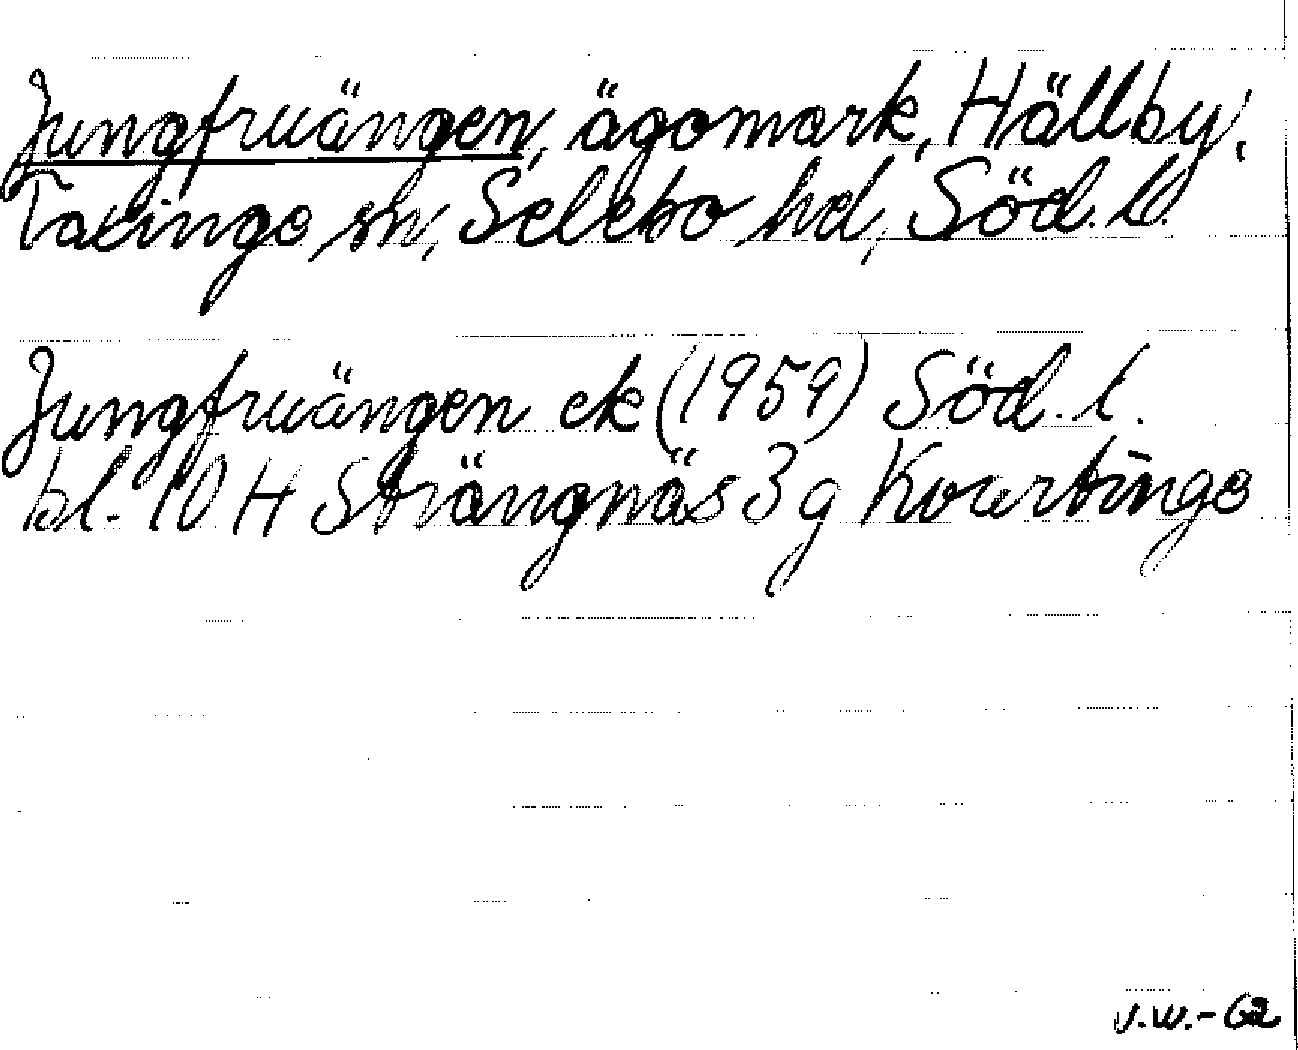 Jungfruängen, ägomark, Hällby,
Taxinge sn, Selebo hd, Söd. l.
Jungfruängen ek (1959) Söd. l.
bl. 10 H Strängnäs 3 g Kvartinge
V.W.-62